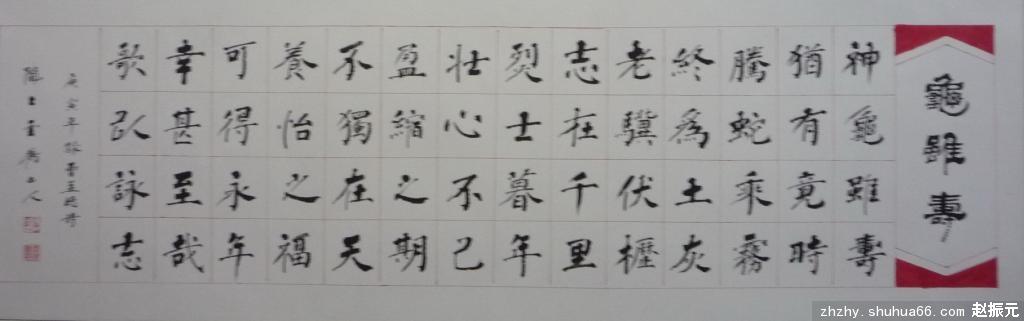 龜雖壽
神龜雖壽
猶有竟時
騰蛇乘霧
終為土灰
老驥伏櫪
志在千里
烈士暮年
壯心不已
盈縮之期
不獨在天
養怡之福
可得永年
幸甚至哉
歌以詠志
庚寅年錄曹孟德詩
zhzhy.shuhua66.com 赵振元